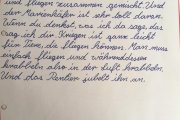 und fliegen zusammen gemischt. Und
der Marienkäfer ist sehr lobt davon.
Wenn du denkst, was ich da sage, das
trag ich dir Knieger ist ganz leicht
für Tiere, die fliegen können. Man muss
einfach fliegen und währenddessen
krabbeln also in der Luft krabbeln.
Und das Pantier jubelt ihn an.